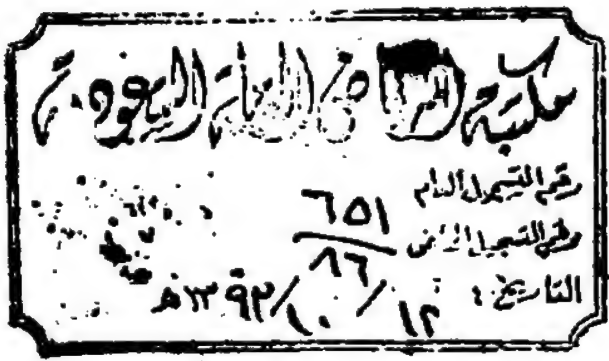 مكتبة الرياض العامة السعودية
رقم التسجيل العام ٦٥١
رقم التسجيل الخاص ٨٦
التاريخ : ١٢/١٠/١٣٩٢هـ